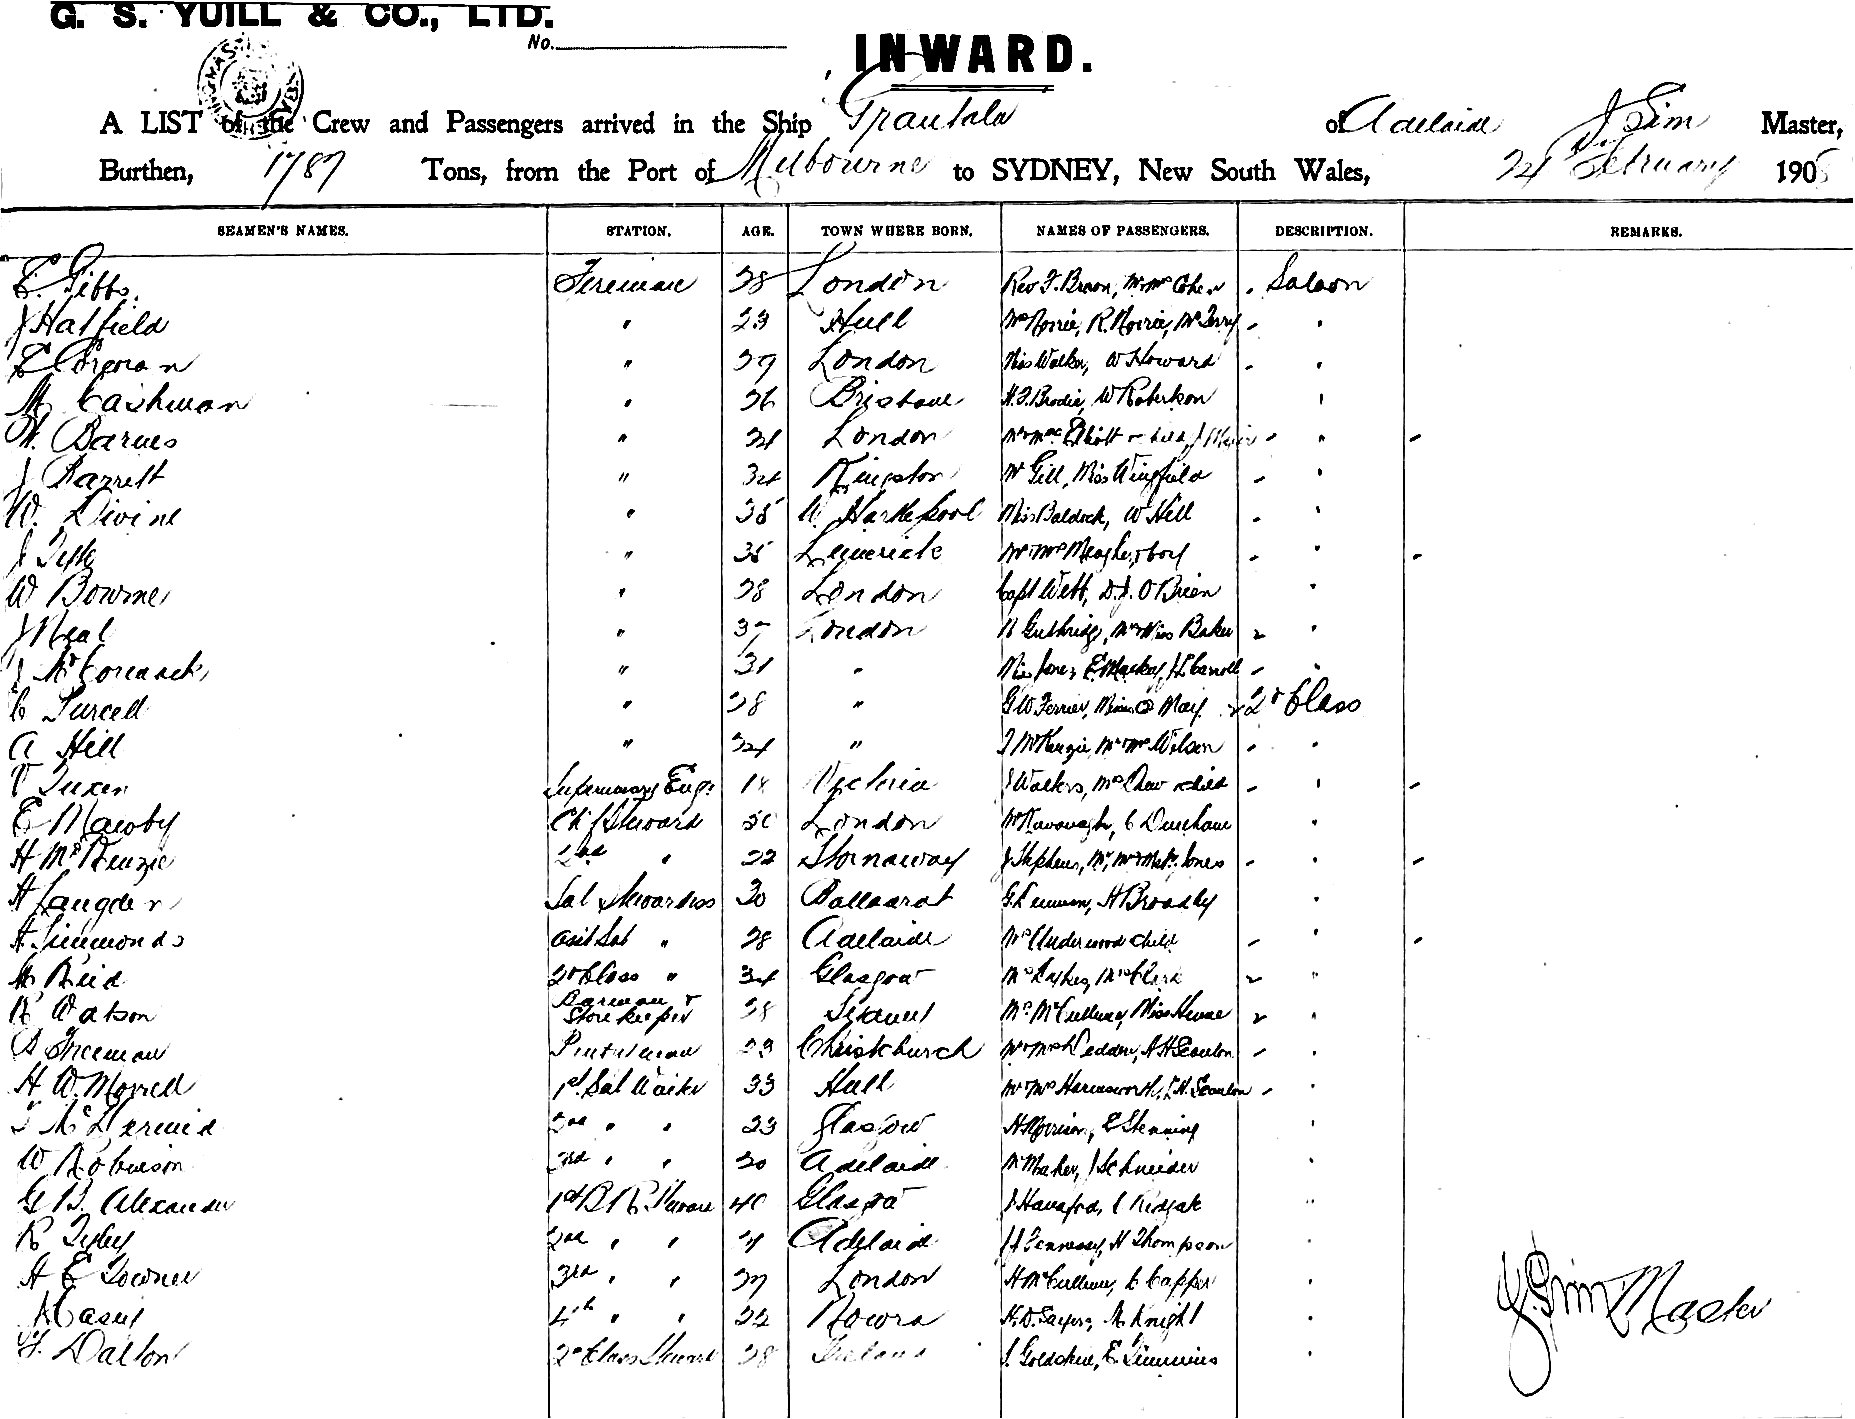 G. S. YUILL & CO., LTD.
No.
INWARD.
A LIST of the Crew and Passengers arrived in the Ship Grantala of Adelaide J Sim Master,
Burthen, 1787 Tons, from the Port of Melbourne to SYDNEY, New South Wales, 24 February 190
SEAMEN'S NAMES. STATION. AGE. TOWN WHERE BORN. NAMES OF PASSENGERS. DESCRIPTION. REMARKS.
E. Gibbs. Fireman 28 London Rev F. Brown, Mr Mrs Cohen Saloon
J Hatfield " 23 Hull Mrs Norrie, R. Norrie, Mr Terry "
" 29 London Miss Walker, W Howard "
M Cashman " 26 Brisbane H.F. Brodie, W Robertson "
W. Barnes " 31 London Mr Mrs Elliott & child, J Muir "
J Barrett " 34 Kingston Mr Gill, Miss Wingfield "
W. Divine " 35 W. Hartlepool Miss Baldock, W Hill "
J " 35 Limerick Mr Mrs Meagher & boy "
W Bowme " 28 London Capt Webb, D.J. O'Brien "
J Neal " London Guthridge, Mr & Miss Baker "
J McCormack " 31 " Miss Jones, E Mackay, J L Carroll "
C Purcell " 28 " G W Ferrier, Misses May 2d Class
A Hill " 34 " J McKenzie, Mr Mrs Wilson "
Tuxen Supernumary Engr 18 Victoria J Walters, Mrs Chew & child "
E Mawby Chf Steward 50 London Mr Kavanagh, C Dunham "
H McKenzie 2nd " 22 Stornaway J Stephens, Jones "
H Langden Sal Stewardess 30 Ballaarat G Lemmon, H Broadby "
A Simmonds Asst Sal " 28 Adelaide Mrs Underwood & child "
M Reid 2d Class " 34 Glasgow Mrs Mrs Clark "
R Watson Barman & 28 Mrs McCullum, Miss Hume "
Storekeeper
D Freeman Pantryman 23 Christchurch Mr Mrs Dedden, A H Scanlon "
H W. Morrell 1st Sal Waiter 33 Hull Mr Mrs Harmsworth, J. H. Scanlon
J McDermid 2nd " " 23 Glasgow H Morrison, E Stenning "
W Robinson 3rd " " 20 Adelaide Mr Maher, J Schneider "
G B. Alexander 1st B R. Steward 40 Glasgow J Hannaford, C Ridgak "
R Tigby 2nd " " Adelaide J J Fennessy, H Thompson "
A E Towner 3rd " " 27 London H McCullum, C Capper "
A Casey 4th " " 22 Nowra H. D. Sayers, M Knight "
J. Dalton 2d Class Steward 28 Ireland J. Goldstein, E. Timmins "
J. Sim Master